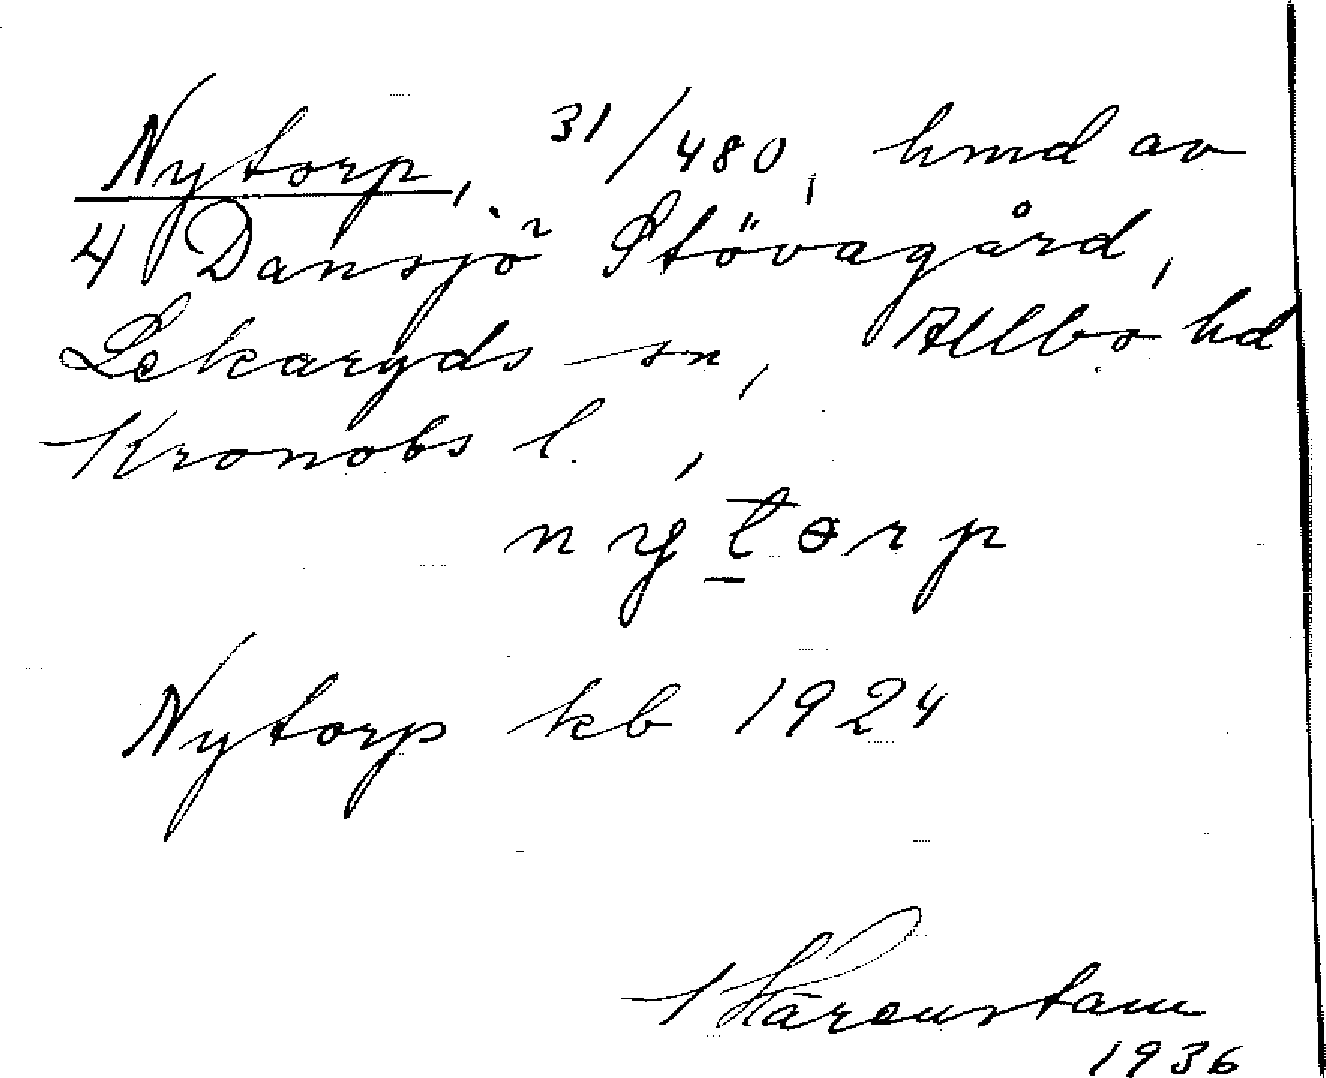 Nytorp, 31/480, hmd av
4 Dansjö Stövagård,
Lekaryds sn, Allbo hd
Kronobs l.,
nytorp
Nytorp kb 1924
Härenstam
1936